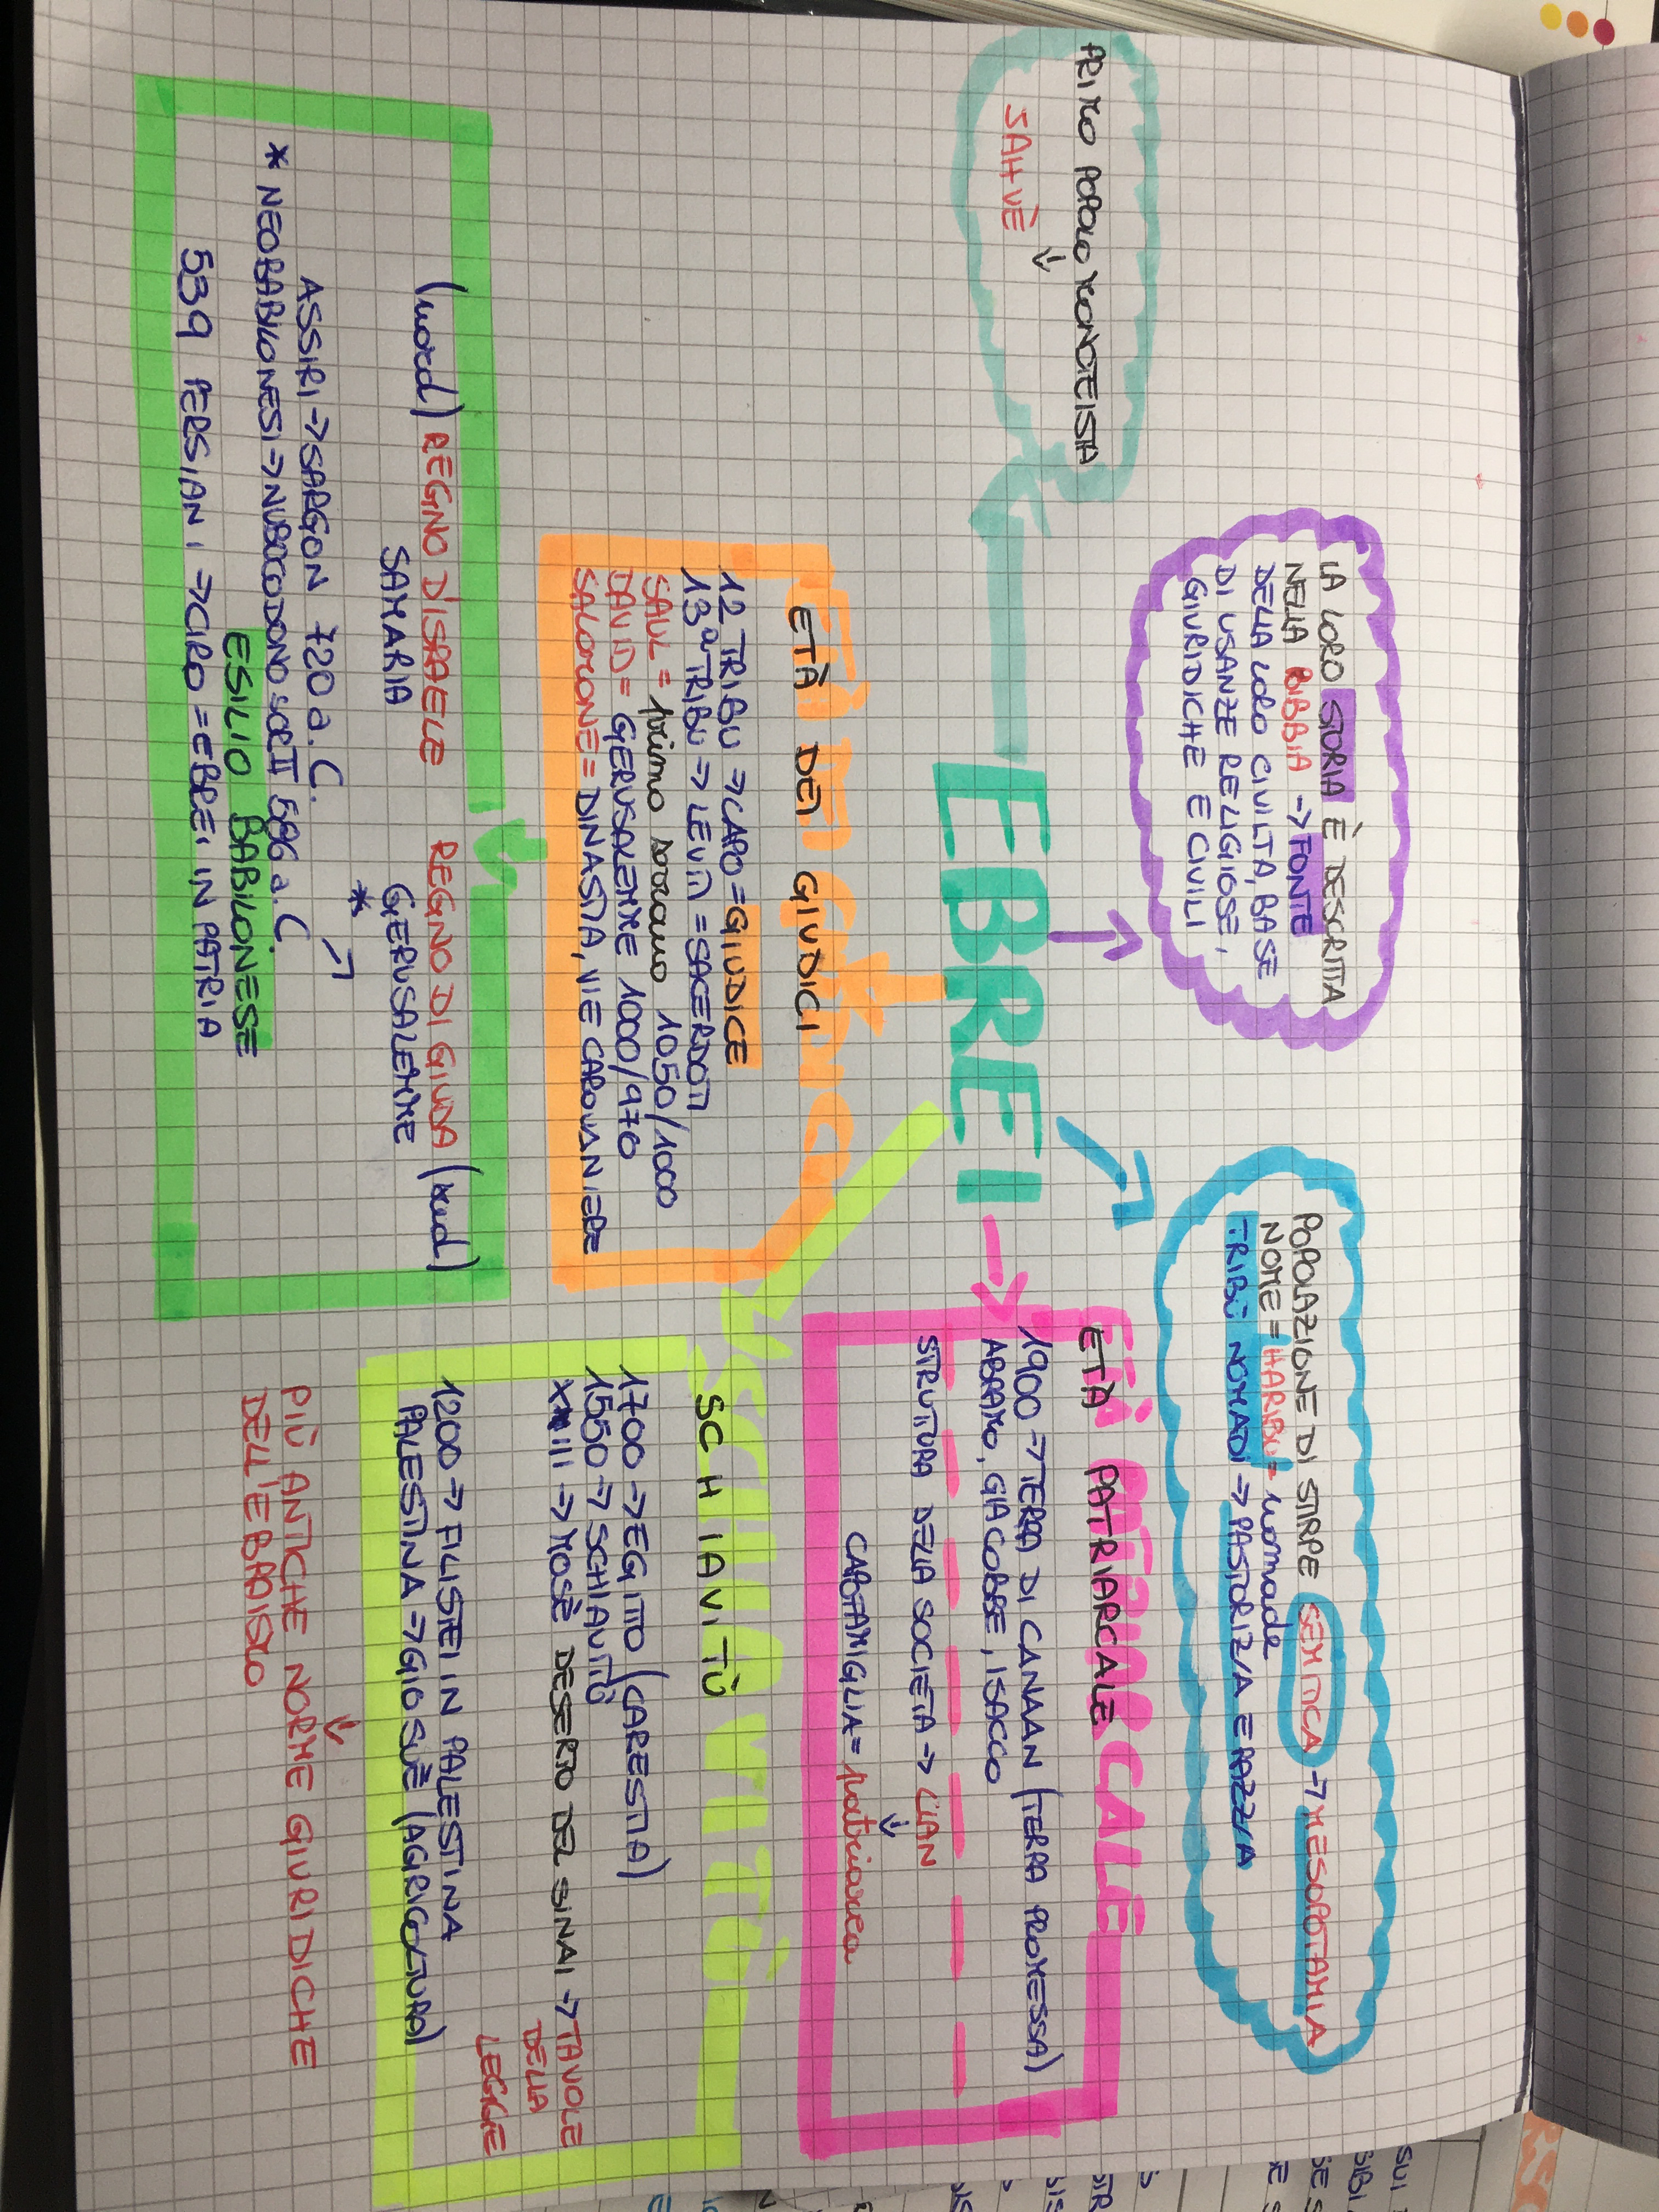 LA LORO STORIA È DESCRITTA
NELLA BIBBIA → FONTE
DELLA LORO CIVILTÀ, BASE
DI USANZE RELIGIOSE,
GIURIDICHE E CIVILI
POPOLAZIONE DI STIRPE SEMITICA → MESOPOTAMIA
NOME = HARIBU = nomade
TRIBÙ NOMADI → PASTORIZIA E RAZZIA
PRIMO POPOLO MONOTEISTA
↓
JAHVÈ
EBREI
ETÀ PATRIARCALE
1900 → TERRA DI CANAAN (TERRA PROMESSA)
ABRAMO, GIACOBBE, ISACCO
STRUTTURA DELLA SOCIETÀ → CLAN
↓
CAPOFAMIGLIA = patriarca
ETÀ DEI GIUDICI
12 TRIBU → CAPO = GIUDICE
13ª TRIBU → LEVITI = SACERDOTI
SAUL = primo sovrano 1050/1000
DAVID = GERUSALEMME 1000/970
SALOMONE = DINASTIA, VIE CAROVANIERE
SCHIAVITÙ
1700 → EGITTO (CARESTIA)
1550 → SCHIAVITÙ
XIII → MOSÈ DESERTO DEL SINAI → TAVOLE
DELLA
LEGGE
1200 → FILISTEI IN PALESTINA
PALESTINA → GIOSUÈ (AGRICOLTURA)
↓
PIÙ ANTICHE NORME GIURIDICHE
DELL'EBRAISMO
(nord) REGNO D'ISRAELE REGNO DI GIUDA (sud)
SAMARIA GERUSALEMME
*
ASSIRI → SARGON 720 a.C.
* NEOBABILONESI → NUBOCODONOSOR II 586 a.C
ESILIO BABILONESE
539 PERSIANI → CIRO = EBREI IN PATRIA